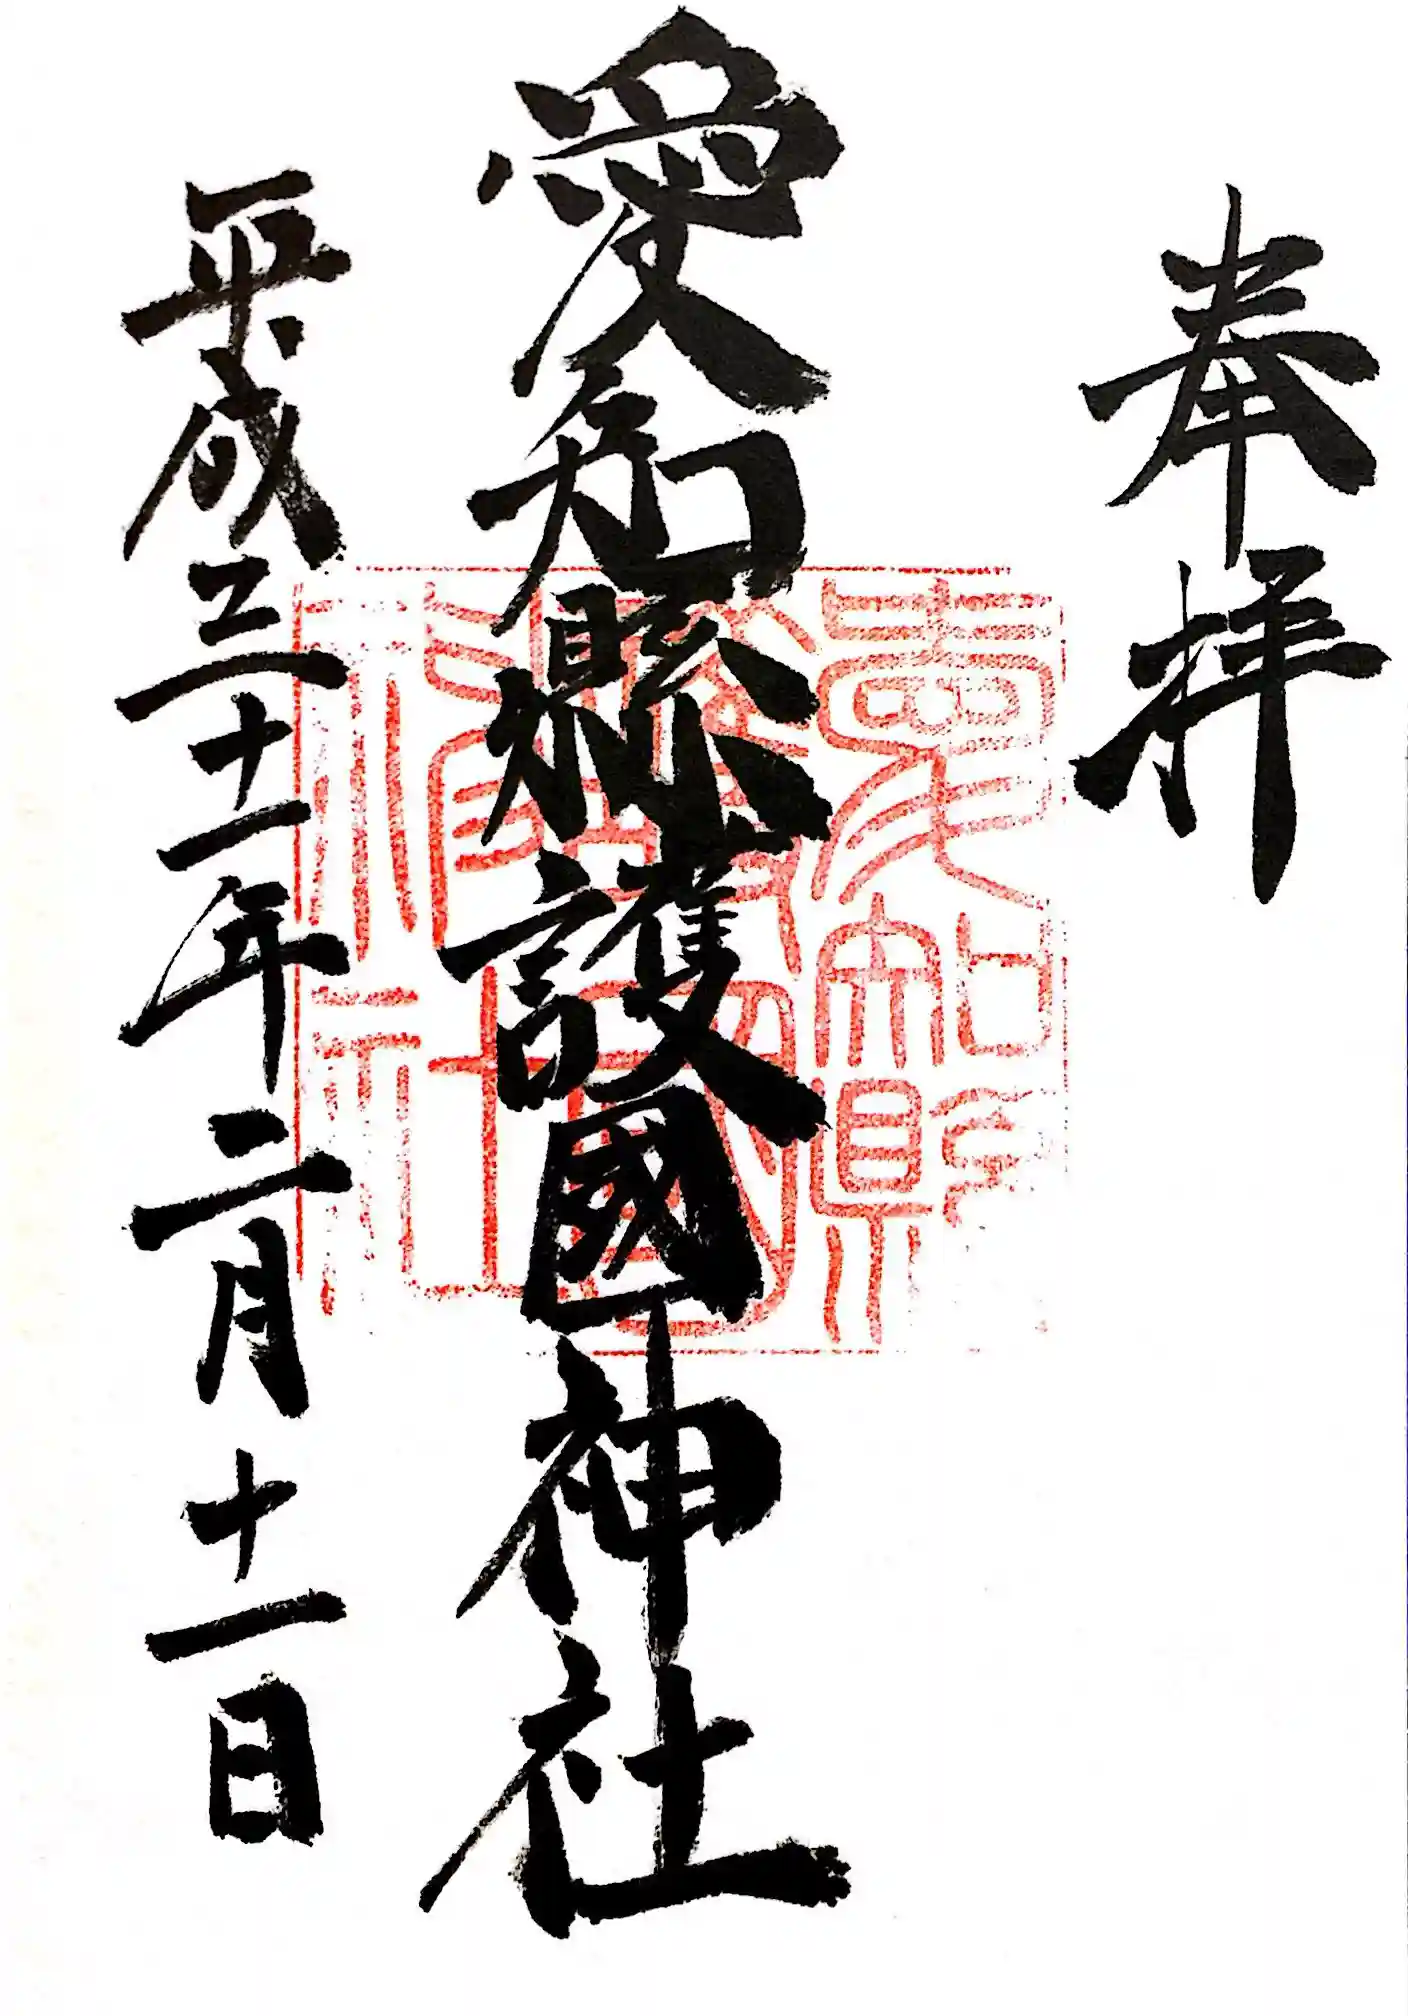 奉拝
愛知縣護國神社
愛知縣
護國
神社
平成三十一年二月十一日